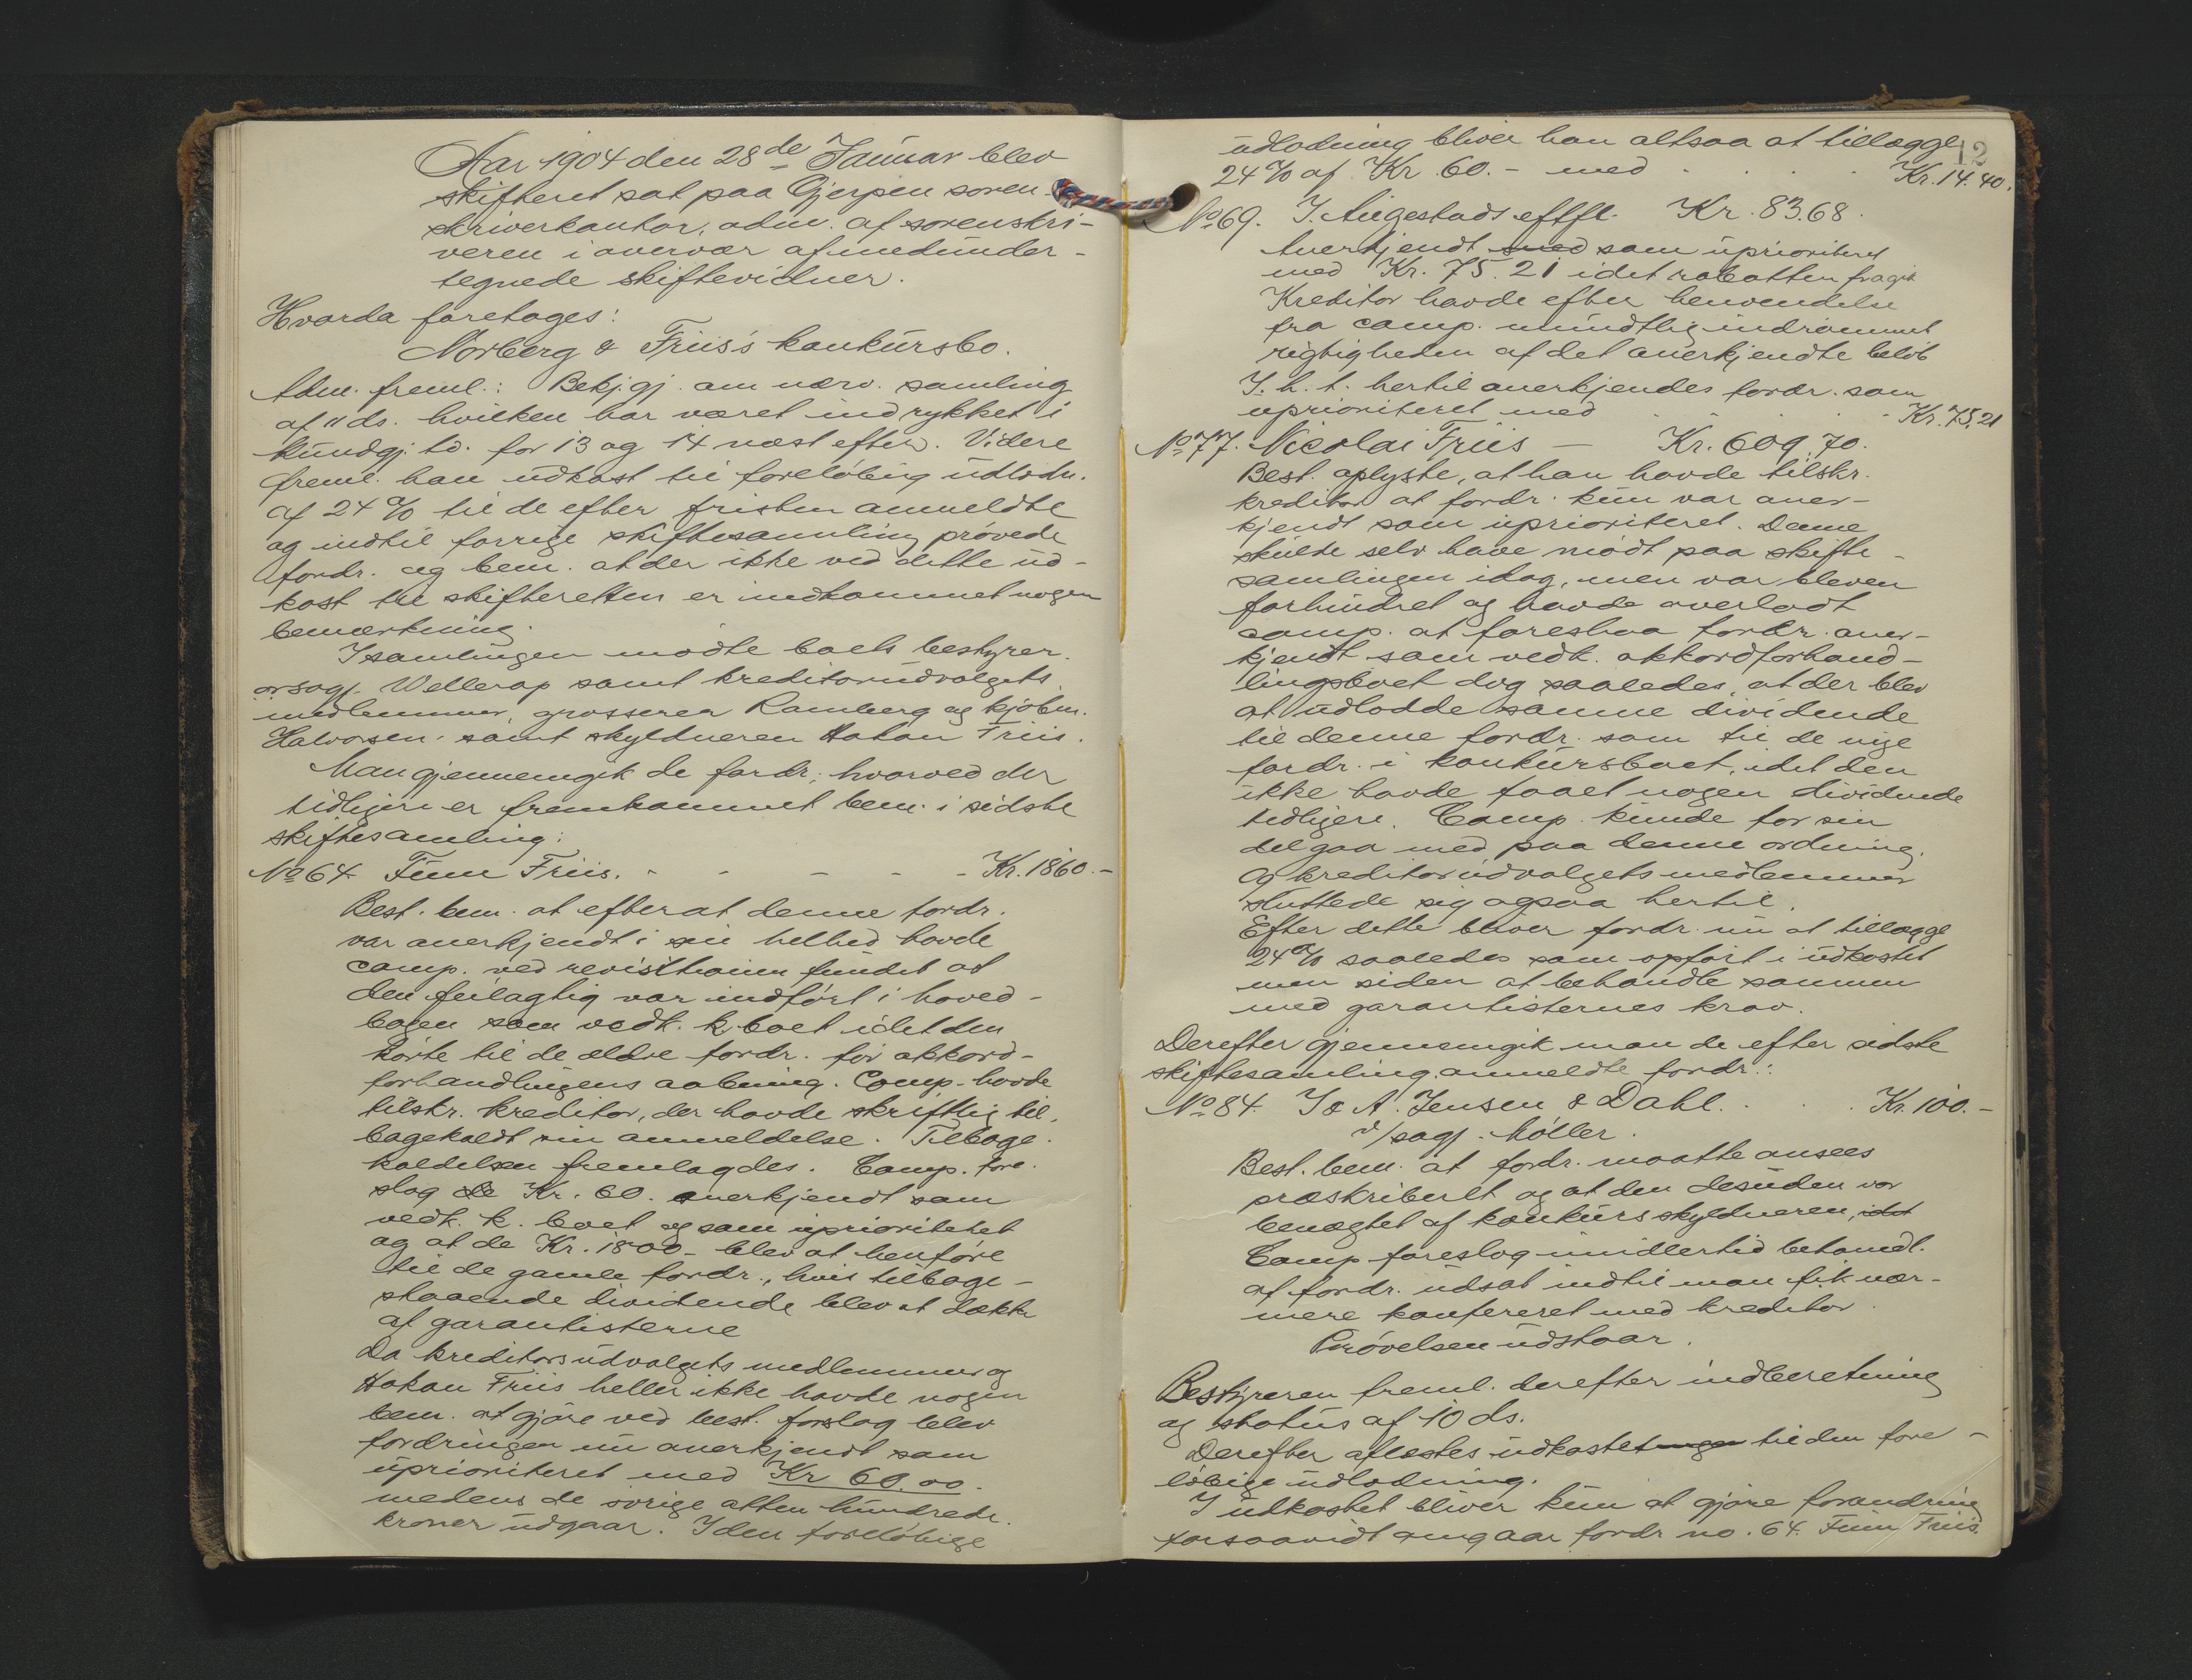 Aar 1904 den 28de Januar blev
skifteret sat paa Gjerpen soren-
skriverkontor, adm. af sorenskri-
veren i overvær af medunder-
tegnede skiftevidner.
Hvorda foretoges:
Norberg & Friis's konkursbo.
Adm. freml.: Bekj.gj. om nærv. samling
af 11 ds. hvilken har været indrykket i
kundgj. td. for 13 og 14 næst efter. Videre
freml. han udkast til foreløbig udlodn.
af 24 % til de efter fristen anmeldte
og indtil forrige skiftesamling prøvede
fordr. og bem. at der ikke ved dette ud-
kast til skifteretten er indkommet nogen
bemærkning.
I samlingen mødte boets bestyrer
orsagf. Wellerop samt kreditorudvalgets
medlemmer, grosserer Ramberg og kjøbm.
Halvorsen samt skyldneren Hakon Friis.
Man gjennemgik de fordr., hvorved der
tidligere er fremkommet bem. i sidste
skiftesamling:
No 64 Finn Friis. - - - - - Kr. 1860.-
Best. bem. at efterat denne fordr.
var anerkjendt i sin helhed havde
comp. ved revisionen fundet at
den feilagtig var indført i hoved-
bogen som vedk. k. boet idet den
hørte til de ældre fordr. før akkord-
forhandlingens aabning. Comp. havde
tilskr. kreditor, der havde skriftlig til-
bagekaldt sin anmeldelse. Tilbage-
kaldelsen fremlagdes. Comp. fore-
slog de Kr. 60. anerkjendt som
vedk. k. boet og som uprioritetet
og at de Kr. 1800- blev at henføre
til de gamle fordr., hvis tilbage-
staaende dividende blev at dække
af garantisterne
Da kreditorsudvalgets medlemmer og
Hakon Friis heller ikke havde nogen
bem. at gjøre ved best. forslag blev
fordringen nu anerkjendt som
uprioriteret med Kr 60.00.
medens de øvrige atten hundrede
kroner udgaar. I den foreløbige
12
udlodning bliver han altsaa at tillægge
24 % af Kr. 60.- med . . . . Kr. 14.40.
No 69. J. Aagestads eftfl. Kr. 83.68.
Anerkjendt med som uprioriteret
med Kr. 75.21 idet rabatten fragik
Kreditor havde efter henvendelse
fra comp. mundtlig indrømmet
rigtigheden af det anerkjendte beløb
I. h. t. hertil anerkjendes fordr. som
uprioriteret med . . . . Kr. 75.21
No 77. Nicolai Friis - Kr. 609.70.
Best. oplyste, at han havde tilskr.
kreditor at fordr. kun var aner-
kjendt som uprioriteret. Denne
skulde selv have mødt paa skifte-
samlingen idag, men var bleven
forhindret og havde overladt
comp. at foreslaa fordr. aner-
kjendt som vedk. akkordforhand-
lingsboet dog saaledes, at der blev
at udlodde samme dividende
til denne fordr. som til de nye
fordr. i konkursboet, idet den
ikke havde faaet nogen dividende
tidligere. Comp. kunde for sin
del gaa med paa denne ordning.
Og kreditorudvalgets medlemmer
sluttede sig ogsaa hertil.
Efter dette bliver fordr. nu at tillægge
24 % saaledes som opført i udkastet
men siden at behandle sammen
med garantisternes krav.
Derefter gjennemgik man de efter sidste
skiftesamling anmeldte fordr.:
No 84. J & A. Jensen & Dahl. . . . Kr. 100.-
v/ sagf. Møller.
Best. bem. at fordr. maatte ansees
præskriberet og at den desuden var
benægtet af konkursskyldneren, idet
Comp. foreslog imidlertid behandl.
af fordr. udsat indtil man fik nær-
mere konfereret med kreditor.
Prøvelsen udstaar.
Bestyreren freml. derefter indberetning
og status af 10 ds.
Derefter aflæstes udkastet til den fore-
løbige udlodning.
I udkastet bliver kun at gjøre forandring
forsaavidt angaar fordr no. 64. Finn Friis.